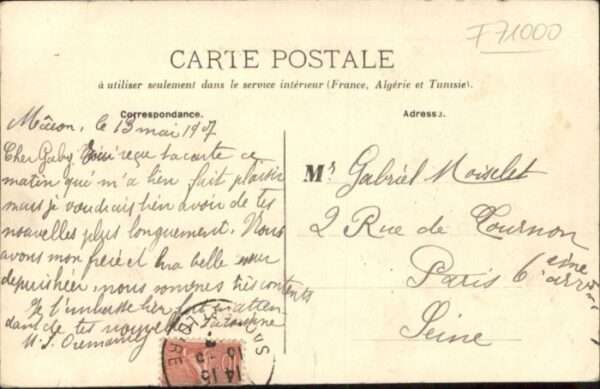 F71000
CARTE POSTALE
à utiliser seulement dans le service intérieur (France, Algérie et Tunisie).
Correspondance.
Adresse.
Mâcon, le 13 mai 1907
Cher Gaby reçue ta carte ce
matin qui m'a bien fait plaisir
mais je voudrais bien avoir de tes
nouvelles plus longuement. Nous
avons mon frère et ma belle sœur
depuis hier, nous sommes très contents
Je t'embrasse bien fort en atten
dant de tes nouvelles
Mr Gabriel Moiselet
2 Rue de Tournon
Paris 6eme arron
Seine